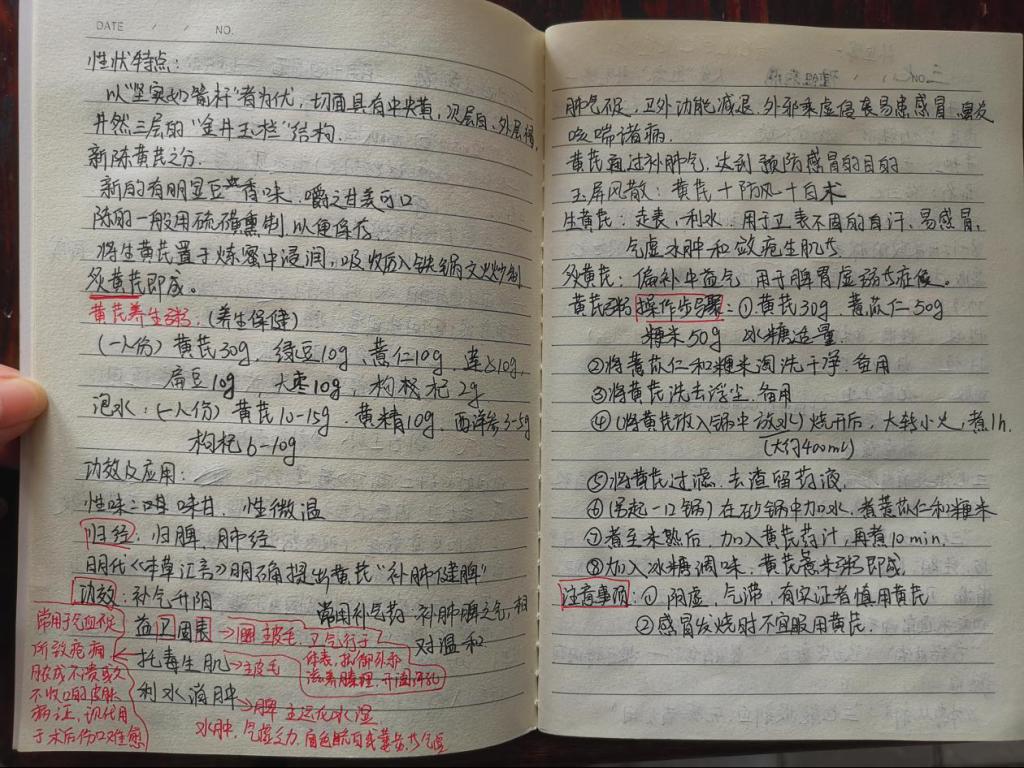 DATE / / NO.
性状特点:
以"坚实如箭杆"者为优,切面具有中央黄,次层白,外层褐,
井然三层的"金井玉栏"结构.
新陈黄芪之分.
新的有明显豆香味.嚼之甘美可口
陈的一般用硫磺熏制,以便保存.
将生黄芪置于炼蜜中浸润,吸收后入铁锅文火炒制
炙黄芪即成。
黄芪养生粥.(养生保健)
(一人份)黄芪30g、绿豆10g、薏仁10g、莲子10g,
扁豆10g、大枣10g,枸杞2g.
泡水:(一人份)黄芪10-15g.黄精10g.西洋参3-5g
枸杞6-10g
功效及应用:
性味:味甘,性微温
归经:归脾、肺经
明代《本草汇言》明确提出黄芪"补肺健脾"
功效:补气升阳
常用补气药 补肺脾之气,相
对温和
益卫固表
→固主皮毛、卫气行于
体表,抵御外邪
滋养腠理,开阖汗孔
托毒生肌
→主皮毛
利水消肿
→脾 主运化水湿
水肿,气虚乏力.面色㿠白或萎黄,为气虚
常用于气血不足
所致疮痈
脓成不溃或久
不收口的皮肤
病证,现代用
于术后伤口难愈
肺气不足,卫外功能减退.外邪乘虚侵袭易患感冒.易发
咳喘诸病.
黄芪通过补肺气,达到预防感冒的目的
玉屏风散:黄芪+防风+白术
生黄芪:走表,利水.用于卫表不固的自汗、易感冒,
气虚水肿和敛疮生肌古
炙黄芪:偏补中益气 用于脾胃虚弱古症候。
黄芪粥操作步骤:①黄芪30g 薏苡仁50g
粳米50g 冰糖适量.
②将薏苡仁和粳米淘洗干净.备用
③将黄芪洗去浮尘.备用
④(将黄芪放入锅中放水)烧开后,大转小火,煮1h.
(大约400mL)
⑤将黄芪过滤.去渣留药液.
⑥(另起一口锅)在砂锅中加水,煮薏苡仁和粳米
⑦煮至米熟后,加入黄芪药汁,再煮10min.
⑧加入冰糖调味.黄芪薏米粥即成
注意事项:①阴虚,气滞,有实证者慎用黄芪
②感冒发烧时不宜服用黄芪.